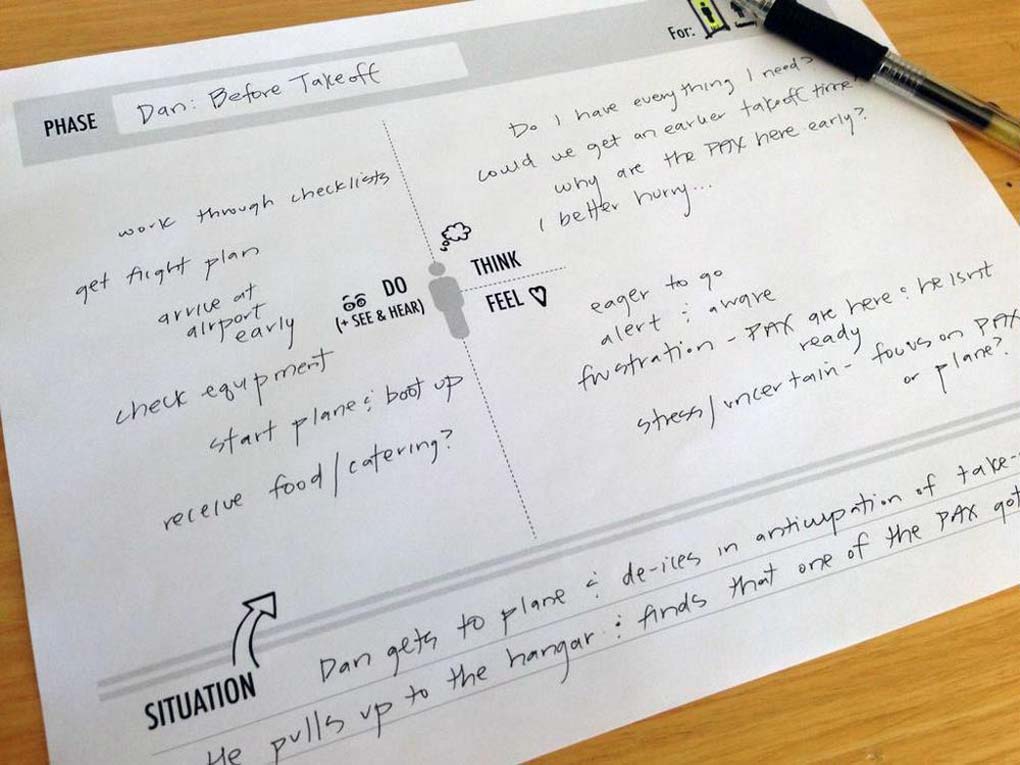 For:
PHASE
Dan: Before Takeoff
work through checklists
get flight plan
arrive at
airport
early
check equipment
start plane & boot up
receive food/catering?
DO
(+ SEE & HEAR)
THINK
Do I have everything I need?
could we get an earlier takeoff time?
why are the PAX here early?
I better hurry...
FEEL
eager to go
alert & aware
frustration - PAX are here & he isn't
ready
stress/uncertain - focus on PAX
or plane?
SITUATION
Dan gets to plane & de-ices in anticipation of take-
He pulls up to the hangar & finds that one of the PAX got